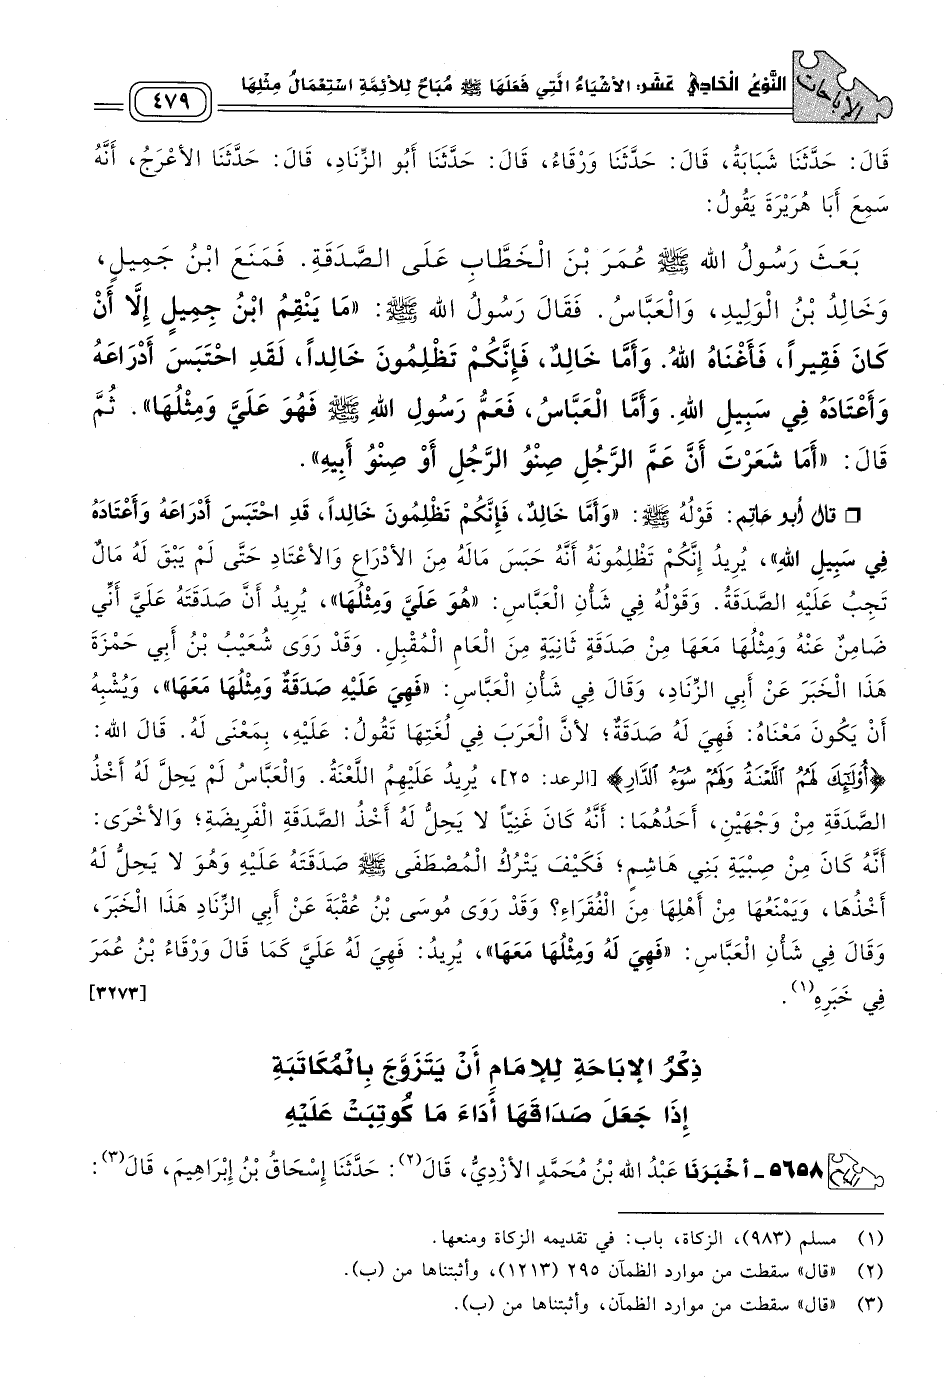 الإباحات
النَّوْعُ الْحَادِيَ عَشَرَ: الأَشْيَاءُ الَّتِي فَعَلَهَا ﷺ مُبَاحٌ لِلأَئِمَّةِ اسْتِعْمَالُ مِثْلِهَا
٤٧٩
قَالَ: حَدَّثَنَا شَبَابَةُ، قَالَ: حَدَّثَنَا وَرْقَاءُ، قَالَ: حَدَّثَنَا أَبُو الزِّنَادِ، قَالَ: حَدَّثَنَا الأَعْرَجُ، أَنَّهُ
سَمِعَ أَبَا هُرَيْرَةَ يَقُولُ:
بَعَثَ رَسُولُ اللهِ ﷺ عُمَرَ بْنَ الْخَطَّابِ عَلَى الصَّدَقَةِ. فَمَنَعَ ابْنُ جَمِيلٍ،
وَخَالِدُ بْنُ الْوَلِيدِ، وَالْعَبَّاسُ. فَقَالَ رَسُولُ اللهِ ﷺ: «مَا يَنْقِمُ ابْنُ جَمِيلٍ إِلَّا أَنْ
كَانَ فَقِيراً، فَأَغْنَاهُ اللهُ. وَأَمَّا خَالِدٌ، فَإِنَّكُمْ تَظْلِمُونَ خَالِداً، لَقَدِ احْتَبَسَ أَدْرَاعَهُ
وَأَعْتَادَهُ فِي سَبِيلِ اللهِ. وَأَمَّا الْعَبَّاسُ، فَعَمُّ رَسُولِ اللهِ ﷺ فَهُوَ عَلَيَّ وَمِثْلُهَا». ثُمَّ
قَالَ: «أَمَا شَعَرْتَ أَنَّ عَمَّ الرَّجُلِ صِنْوُ الرَّجُلِ أَوْ صِنْوُ أَبِيهِ».
❒ قال أبو حاتم: قَوْلُهُ ﷺ: «وَأَمَّا خَالِدٌ، فَإِنَّكُمْ تَظْلِمُونَ خَالِداً، قَدِ احْتَبَسَ أَدْرَاعَهُ وَأَعْتَادَهُ
فِي سَبِيلِ اللهِ»، يُرِيدُ إِنَّكُمْ تَظْلِمُونَهُ أَنَّهُ حَبَسَ مَالَهُ مِنَ الأَدْرَاعِ وَالأَعْتَادِ حَتَّى لَمْ يَبْقَ لَهُ مَالٌ
تَجِبُ عَلَيْهِ الصَّدَقَةُ. وَقَوْلُهُ فِي شَأْنِ الْعَبَّاسِ: «هُوَ عَلَيَّ وَمِثْلُهَا»، يُرِيدُ أَنَّ صَدَقَتَهُ عَلَيَّ أَنِّي
ضَامِنٌ عَنْهُ وَمِثْلُهَا مَعَهَا مِنْ صَدَقَةٍ ثَانِيَةٍ مِنَ الْعَامِ الْمُقْبِلِ. وَقَدْ رَوَى شُعَيْبُ بْنُ أَبِي حَمْزَةَ
هَذَا الْخَبَرَ عَنْ أَبِي الزِّنَادِ، وَقَالَ فِي شَأْنِ الْعَبَّاسِ: «فَهِيَ عَلَيْهِ صَدَقَةٌ وَمِثْلُهَا مَعَهَا»، وَيُشْبِهُ
أَنْ يَكُونَ مَعْنَاهُ: فَهِيَ لَهُ صَدَقَةٌ؛ لأَنَّ الْعَرَبَ فِي لُغَتِهَا تَقُولُ: عَلَيْهِ، بِمَعْنَى لَهُ. قَالَ اللهُ:
﴿أُوْلَٰٓئِكَ لَهُمُ ٱللَّعْنَةُ وَلَهُمْ سُوٓءُ ٱلدَّارِ﴾ [الرعد: ٢٥]، يُرِيدُ عَلَيْهِمُ اللَّعْنَةُ. وَالْعَبَّاسُ لَمْ يَحِلَّ لَهُ أَخْذُ
الصَّدَقَةِ مِنْ وَجْهَيْنِ، أَحَدُهُمَا: أَنَّهُ كَانَ غَنِيّاً لا يَحِلُّ لَهُ أَخْذُ الصَّدَقَةِ الْفَرِيضَةِ؛ وَالأُخْرَى:
أَنَّهُ كَانَ مِنْ صِبْيَةِ بَنِي هَاشِمٍ؛ فَكَيْفَ يَتْرُكُ الْمُصْطَفَى ﷺ صَدَقَتَهُ عَلَيْهِ وَهُوَ لا يَحِلُّ لَهُ
أَخْذُهَا، وَيَمْنَعُهَا مِنْ أَهْلِهَا مِنَ الْفُقَرَاءِ؟ وَقَدْ رَوَى مُوسَى بْنُ عُقْبَةَ عَنْ أَبِي الزِّنَادِ هَذَا الْخَبَرَ،
وَقَالَ فِي شَأْنِ الْعَبَّاسِ: «فَهِيَ لَهُ وَمِثْلُهَا مَعَهَا»، يُرِيدُ: فَهِيَ لَهُ عَلَيَّ كَمَا قَالَ وَرْقَاءُ بْنُ عُمَرَ
فِي خَبَرِهِ(١). [٣٢٧٣]
ذِكْرُ الإِبَاحَةِ لِلإِمَامِ أَنْ يَتَزَوَّجَ بِالْمُكَاتَبَةِ
إِذَا جَعَلَ صَدَاقَهَا أَدَاءَ مَا كُوتِبَتْ عَلَيْهِ
٥٦٥٨ - أَخْبَرَنَا عَبْدُ اللهِ بْنُ مُحَمَّدٍ الأَزْدِيُّ، قَالَ(٢): حَدَّثَنَا إِسْحَاقُ بْنُ إِبْرَاهِيمَ، قَالَ(٣):
(١) مسلم (٩٨٣)، الزكاة، باب: في تقديمه الزكاة ومنعها.
(٢) «قال» سقطت من موارد الظمآن ٢٩٥ (١٢١٣)، وأثبتناها من (ب).
(٣) «قال» سقطت من موارد الظمآن، وأثبتناها من (ب).